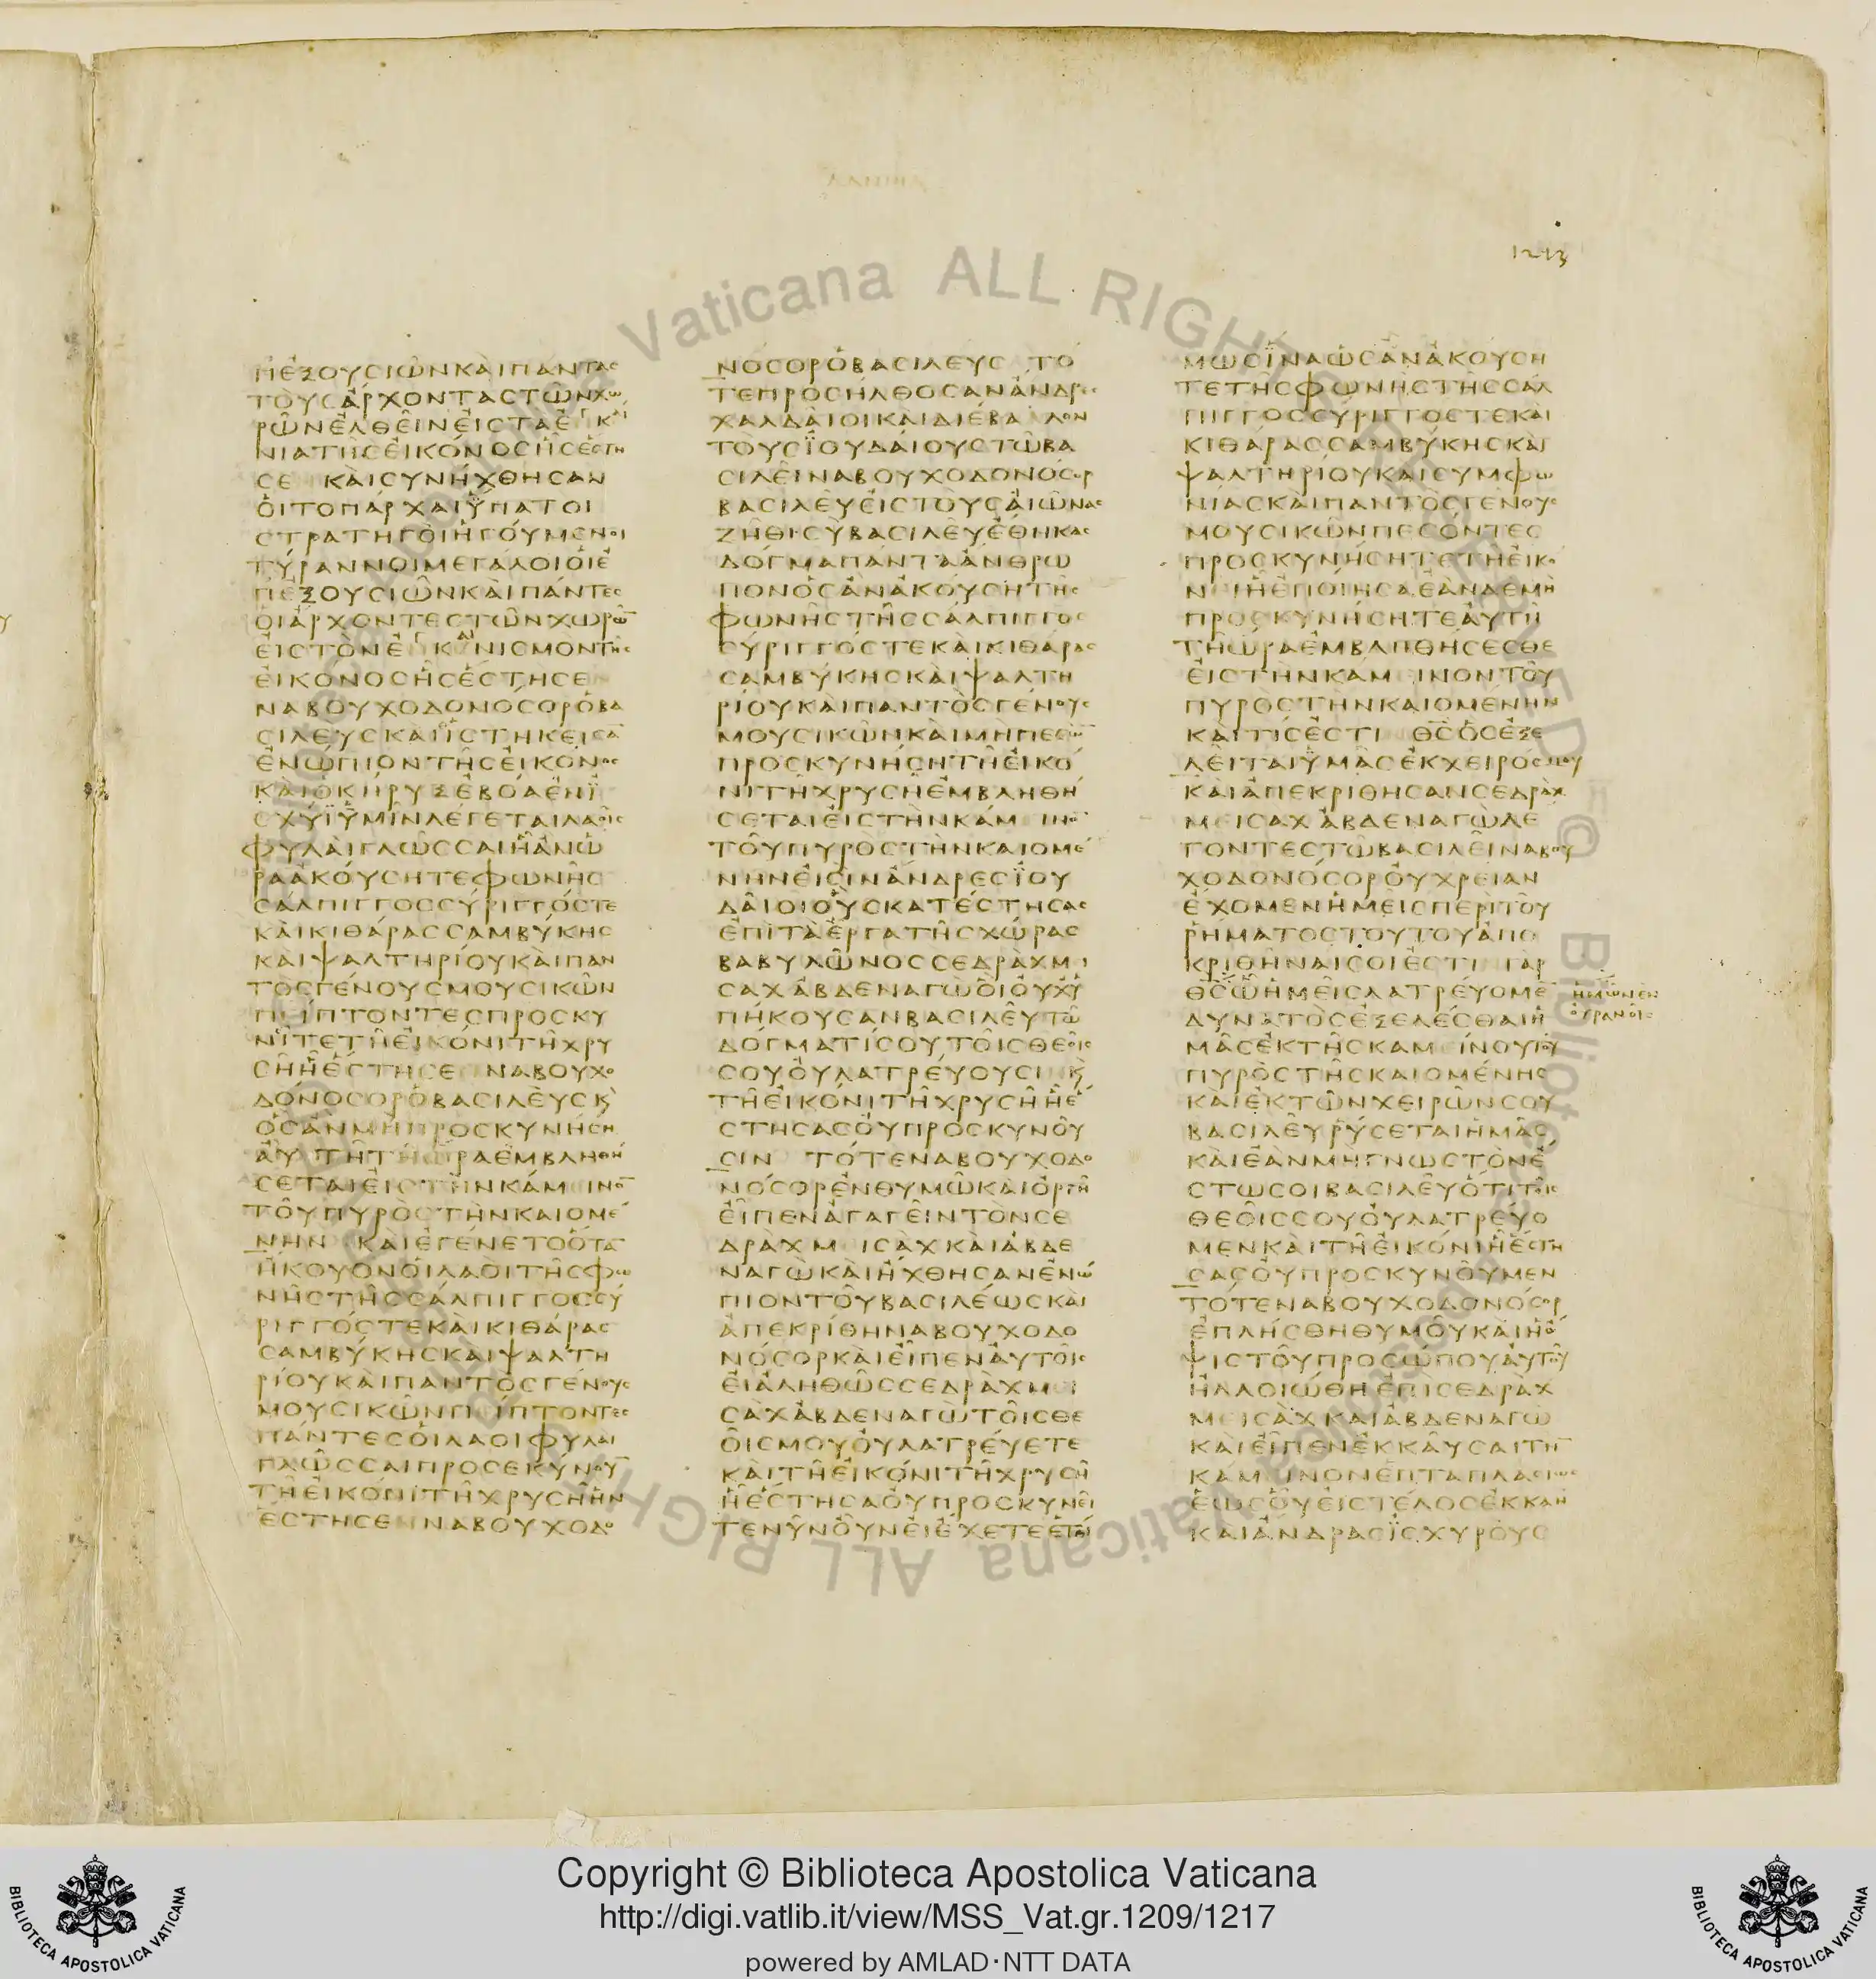 ΔΑΝΙΗΛ
1213
ΠἘΞΟΥΣΙΩ͂ΝΚΑῚΠΑΝΤΑΣ
ΤΟῪΣἌΡΧΟΝΤΑΣΤΩ͂ΝΧΩ
ΡΩ͂ΝἘΛΘΕΙ͂ΝΕἸΣΤΑἘΓΚΑΙ
ΝΙΑΤΗ͂ΣΕἸΚΌΝΟΣΗ͂ΣἜΣΤΗ
ΣΕ ΚΑῚΣΥΝΉΧΘΗΣΑΝ
ΟἹΤΟΠΑΡΧΑΙΥΠΑΤΟΙ
ΣΤΡΑΤΗΓΟῚἩΓΟΎΜΕΝΟΙ
ΤΎΡΑΝΝΟΙΜΕΓΑΛΟΙΟἹἘ
ΠΕΞΟΥΣΙΩ͂ΝΚΑῚΠΆΝΤΕΣ
ΟἹἌΡΧΟΝΤΕΣΤΩ͂ΝΧΩΡΩ͂
ΕἸΣΤῸΝἘΓΚΑΙΝΙΣΜΟΝΤΗΣ
ΕἸΚΟΝΟΣΗ͂ΣἜΣΤΗΣΕ
ΝΑΒΟΥΧΟΔΟΝΟΣΟΡὉΒΑ
ΣΙΛΕΥΣΚΑῚἹΣΤΗΚΕΙΣΑ
ἘΝΩΠΙΟΝΤΗ͂ΣΕἸΚΟΝΟΣ
ΚΑῚὉΚΗΡΥΞἘΒΟΑἘΝἸ
ΣΧΥΪΫΜΙ͂ΝΛΈΓΕΤΑΙΛΑΟΙΣ
ΦΥΛΑῚΓΛΩ͂ΣΣΑΙΗἊΝΩ
ΡΑἈΚΟΎΣΗΤΕΦΩΝΗ͂Σ
ΣΑΛΠΙΓΓΟΣΣΥΡΙΓΓΌΣΤΕ
ΚΑῚΚΙΘΆΡΑΣΣΑΜΒΎΚΗΣ
ΚΑῚΨΑΛΤΗΡΊΟΥΚΑῚΠΑΝ
ΤῸΣΓΈΝΟΥΣΜΟΥΣΙΚΩ͂Ν
ΠΕΙΠΤΟΝΤΕΣΠΡΟΣΚΥ
ΝΙΤΕΤΗ͂ΕἸΚΌΝΙΤΗ͂ΧΡΥ
ΣΗ͂Η͂ἜΣΤΗΣΕ ΝΑΒΟΥΧΟ
ΔΌΝΟΣΟΡὉΒΑΣΙΛΕῪΣΚ
ὉΣἊΝΜΗΠΡΟΣΚΥΝΉΣΗ
ἈΥΤΗ͂ΤΗ͂ΩΡΑἘΜΒΛΗΘΗ
ΣΕΤΑΙΕἸΣΤῊΝΚΆΜΕΙΝΟ
ΤΟΥ͂ΠΥΡῸΣΤῊΝΚΑΙΟΜΕ
ΝΗΝ ΚΑῚἘΓΈΝΕΤΟὍΤΑ
ἬΚΟΥΟΝΟἹΛΑΟῚΤΗ͂ΣΦΩ
ΝΗ͂ΣΤΗ͂ΣΣΆΛΠΙΓΓΟΣΣΥ
ΡΙΓΓΌΣΤΕΚΑῚΚΙΘΆΡΑΣ
ΣΑΜΒΎΚΗΣΚΑῚΨΑΛΤΗ
ΡΙΟΥΚΑῚΠΑΝΤῸΣΓΈΝΟΥΣ
ΜΟΥΣΙΚΩ͂ΝΠΕΙΠΤΟΝΤΕΣ
ΠΆΝΤΕΣΟἹΛΑΟΙΦΥΛΑΙ
ΓΛΩ͂ΣΣΑΙΠΡΟΣΕΚΥΝΟΥ
ΤΗ͂ΕἸΚΌΝΙΤΗ͂ΧΡΥΣΗ͂ΗΝ
ἜΣΤΗΣΕΝ ΝΑΒΟΥΧΟΔΟ
ΝΌΣΟΡὉΒΑΣΙΛΕΥΣ ΤΟ
ΤΕΠΡΟΣΗ͂ΛΘΟΣΑΝἌΝΔΡΕΣ
ΧΑΛΔΑΙΟΙΚΑῚΔΙΕΒΑΛΛΟΝ
ΤΟΥΣΪΟΥΔΑΙΟΥΣΤΩ͂ΒΑ
ΣΙΛΕΙ͂ΝΑΒΟΥΧΟΔΟΝΟΣΟΡ
ΒΑΣΙΛΕΥ͂ΕἸΣΤΟῪΣΑἸΩ͂ΝΑΣ
ΖΗ͂ΘΙΣῪΒΑΣΙΛΕΥ͂ἜΘΗΚΑΣ
ΔΌΓΜΑΠΑΝΤΑἌΝΘΡΩ
ΠΟΝὉΣἊΝἈΚΟΎΣΗΤΗΣ
ΦΩΝΗ͂ΣΤΗ͂ΣΣΆΛΠΙΓΓΟΣ
ΣΥΡΙΓΓΌΣΤΕΚΑῚΚΙΘΆΡΑΣ
ΣΑΜΒΎΚΗΣΚΑῚΨΑΛΤΗ
ΡΙΟΥΚΑῚΠΑΝΤῸΣΓΈΝΟΥΣ
ΜΟΥΣΙΚΩ͂ΝΚΑῚΜΗΠΕΣΩ
ΠΡΟΣΚΥΝΉΣΗΤΗ͂ΕἸΚΟ
ΝΙΤΗΧΡΥΣΗ͂ἘΜΒΛΗΘΗ
ΣΕΤΑΙΕἸΣΤῊΝΚΆΜΕΙΝΟ
ΤΟΥ͂ΠΥΡῸΣΤῊΝΚΑΙΟΜΕ
ΝΗΝΕἸΣῚΝἌΝΔΡΕΣΪΟΥ
ΔΑΙ͂ΟΙΟὛΣΚΑΤΈΣΤΗΣΑΣ
ἘΠῚΤᾺἜΡΓΑΤΗ͂ΣΧΏΡΑΣ
ΒΑΒΥΛΩ͂ΝΟΣΣΕΔΡᾺΧΜΕΙ
ΣΑΧἈΒΔΕΝΑΓΩΟἹΟΥΧΥ
ΠΗΚΟΥΣΑΝΒΑΣΙΛΕΥ͂ΤΩ͂
ΔΟΓΜΑΤΙΣΟΥΤΟΙ͂ΣΘΕΟΙΣ
ΣΟΥΟΥΛΑΤΡΕΎΟΥΣΙ Κ
ΤΗ͂ΕἸΚΟΝΙΤΗ͂ΧΡΥΣΗ͂Η͂Ἐ
ΣΤΗΣΑΣΟΥΠΡΟΣΚΥΝΟΥ͂
ΣΙΝ ΤΌΤΕΝΑΒΟΥΧΟΔΟ
ΝΌΣΟΡἘΝΘΥΜΩ͂ΚΑῚὈΡΓΗ
ΕἸΠΕΝἈΓΑΓΕΙ͂ΝΤῸΝΣΕ
ΔΡΑΧΜΕΙΣᾺΧΚΑῚἈΒΔΕ
ΝΑΓῺΚΑῚΗΧΘΗΣΑΝἘΝΩ
ΠΙΟΝΤΟΥ͂ΒΑΣΙΛΈΩΣΚΑῚ
ἈΠΕΚΡΊΘΗΝΑΒΟΥΧΟΔΟ
ΝΌΣΟΡΚΑῚΕΙ͂ΠΕΝἈΥΤΟΙ͂Σ
ΕἸἈΛΗΘΩ͂ΣΣΕΔΡᾺΧΜΕΙ
ΣΑΧἈΒΔΕΝΑΓῺΤΟΙ͂ΣΘΕ
ΟΙ͂ΣΜΟΥΟΥΛΑΤΡΕΎΕΤΕ
ΚΑῚΤΗ͂ΕἸΚΌΝΙΤΗ͂ΧΡΥΣΗ͂
Η͂ἜΣΤΗΣΑΟΥΠΡΟΣΚΥΝΕΙ͂
ΤΕΝΥ͂ΝΟΥ͂ΝΕἸἜΧΕΤΕἙΤΟΙ
ΜΩΣΪΝΑΩΣἊΝἈΚΟΥΣΗ
ΤΕΤΗ͂ΣΦΩΝΗ͂ΣΤΗ͂ΣΣΑΛ
ΠΙΓΓΟΣΣΥΡΙΓΓΟΣΤΕΚΑΙ
ΚΙΘΆΡΑΣΣΑΜΒΎΚΗΣΚΑῚ
ΨΑΛΤΗΡΊΟΥΚΑΙΣΥΜΦΩ
ΝΙΑΣΚΑῚΠΑΝΤῸΣΓΕΝΟΥΣ
ΜΟΥΣΙΚΩ͂ΝΠΕΣΌΝΤΕΣ
ΠΡΟΣΚΥΝΉΣΗΤΕΤΗ͂ΕἸΚΟ
ΝΙΗ͂ἘΠΟΙΗΣΑἘΑΝΔΕΜῊ
ΠΡΟΣΚΥΝΉΣΗΤΕἈΥΤΗ͂
ΤΗ͂ΩΡΑἘΜΒΛΗΘΉΣΕΣΘΕ
ΕἸΣΤῊΝΚΑΜΕΙΝΟΝΤΟΥ͂
ΠΥΡῸΣΤῊΝΚΑΙΟΜΈΝΗΝ
ΚΑῚΤΙΣἘΣΤΙ ΘΣὉΣἘΞΕ
ΛΕΙ͂ΤΑΙΫΜΑ͂ΣἘΚΧΕΙΡΌΣΜΟΥ
ΚΑῚἈΠΕΚΡΙΘΗΣΑΝΣΕΔΡΑΧ
ΜΕΙΣΑΧἈΒΔΕΝΑΓῺΛΕ
ΓΟΝΤΕΣΤΩ͂ΒΑΣΙΛΕΙ͂ΝΑΒΟΥ
ΧΟΔΟΝΟΣΟΡΟΥΧΡΕΙΑΝ
ἜΧΟΜΕΝἩΜΕΙΣΠΕΡῚΤΟΥ
ΡΗΜΑΤΟΣΤΟΥΤΟΥἈΠΟ
ΚΡΙΘΗ͂ΝΑΙΣΟΙἘΣΤΙ ΓΑΡ
ΘΣΩ͂ἩΜΕΙ͂ΣΛΑΤΡΕΎΟΜΕ
ἩΜΩ͂ΝἘΝ
ΟΥΡΑΝΟΙΣ
ΔΥΝΑΤῸΣἘΞΕΛΈΣΘΑΙἩ
ΜΑ͂ΣἘΚΤΗ͂ΣΚΑΜΕΙΝΟΥΤΟΥ
ΠΥΡῸΣΤΗ͂ΣΚΑΙΟΜΈΝΗΣ
ΚΑῚἘΚΤΩ͂ΝΧΕΙΡΩ͂ΝΣΟΥ
ΒΑΣΙΛΕΥ͂ΡΥΣΕΤΑΙἩΜΑ͂Σ
ΚΑῚἘΑΝΜΗΓΝΩΣΤῸΝἘ
ΣΤΩΣΟΙΒΑΣΙΛΕΥ͂ὉΤΙΤΟΙΣ
ΘΕΟΙ͂ΣΣΟΥΟΥΛΑΤΡΕΎΟ
ΜΕΝΚΑῚΤΗ͂ΕἸΚΌΝΙΗ͂ἜΣΤΗ
ΣΑΣΟΥΠΡΟΣΚΥΝΟΥ͂ΜΕΝ
ΤΌΤΕΝΑΒΟΥΧΟΔΟΝΌΣΟΡ
ἘΠΛΉΣΘΗΘΥΜΟΥ͂ΚΑῚἩΌ
ΨΙΣΤΟΥ͂ΠΡΟΣΏΠΟΥἈΥΤΟΥ͂
ἨΛΛΟΙΏΘΗἘΠῚΣΕΔΡᾺΧ
ΜΕΙΣᾺΧΚΑῚἈΒΔΕΝΑΓΩ
ΚΑῚΕΙ͂ΠΕΝἘΚΚΑΥ͂ΣΑΙΤΗ
ΚΑΜΕΙΝΟΝἙΠΤΑΠΛΑΣΙΩΣ
ἙΩΣΟΥ͂ΕἸΣΤΈΛΟΣἘΚΚΑΗ
ΚΑῚἌΝΔΡΑΣΪΣΧΥΡΟῪΣ
Copyright © Biblioteca Apostolica Vaticana
http://digi.vatlib.it/view/MSS_Vat.gr.1209/1217
powered by AMLAD·NTT DATA